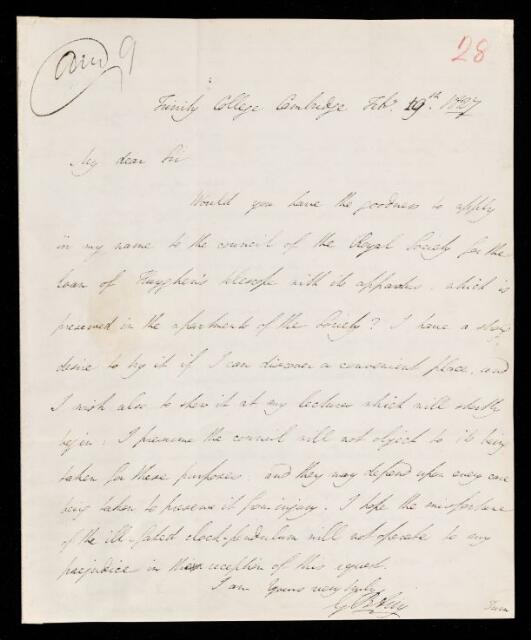 28
Trinity College Cambridge Feb. 19th. 1827
My dear Sir
Would you have the goodness to apply
in my name to the council of the Royal Society for the
loan of Huyghen's telescope with its apparatus, which is
preserved in the apartments of the Society? I have a strong
desire to try it if I can discover a convenient place, and
I wish also to shew it at my lectures which will shortly
begin. I presume the council will not object to its being
taken for these purposes, and they may depend upon every care
being taken to preserve it from injury. I hope the misfortune
of the ill-fated clock-pendulum will not operate to any
prejudice in the reception of this request.
I am Yours very truly
G B Airy
Turn